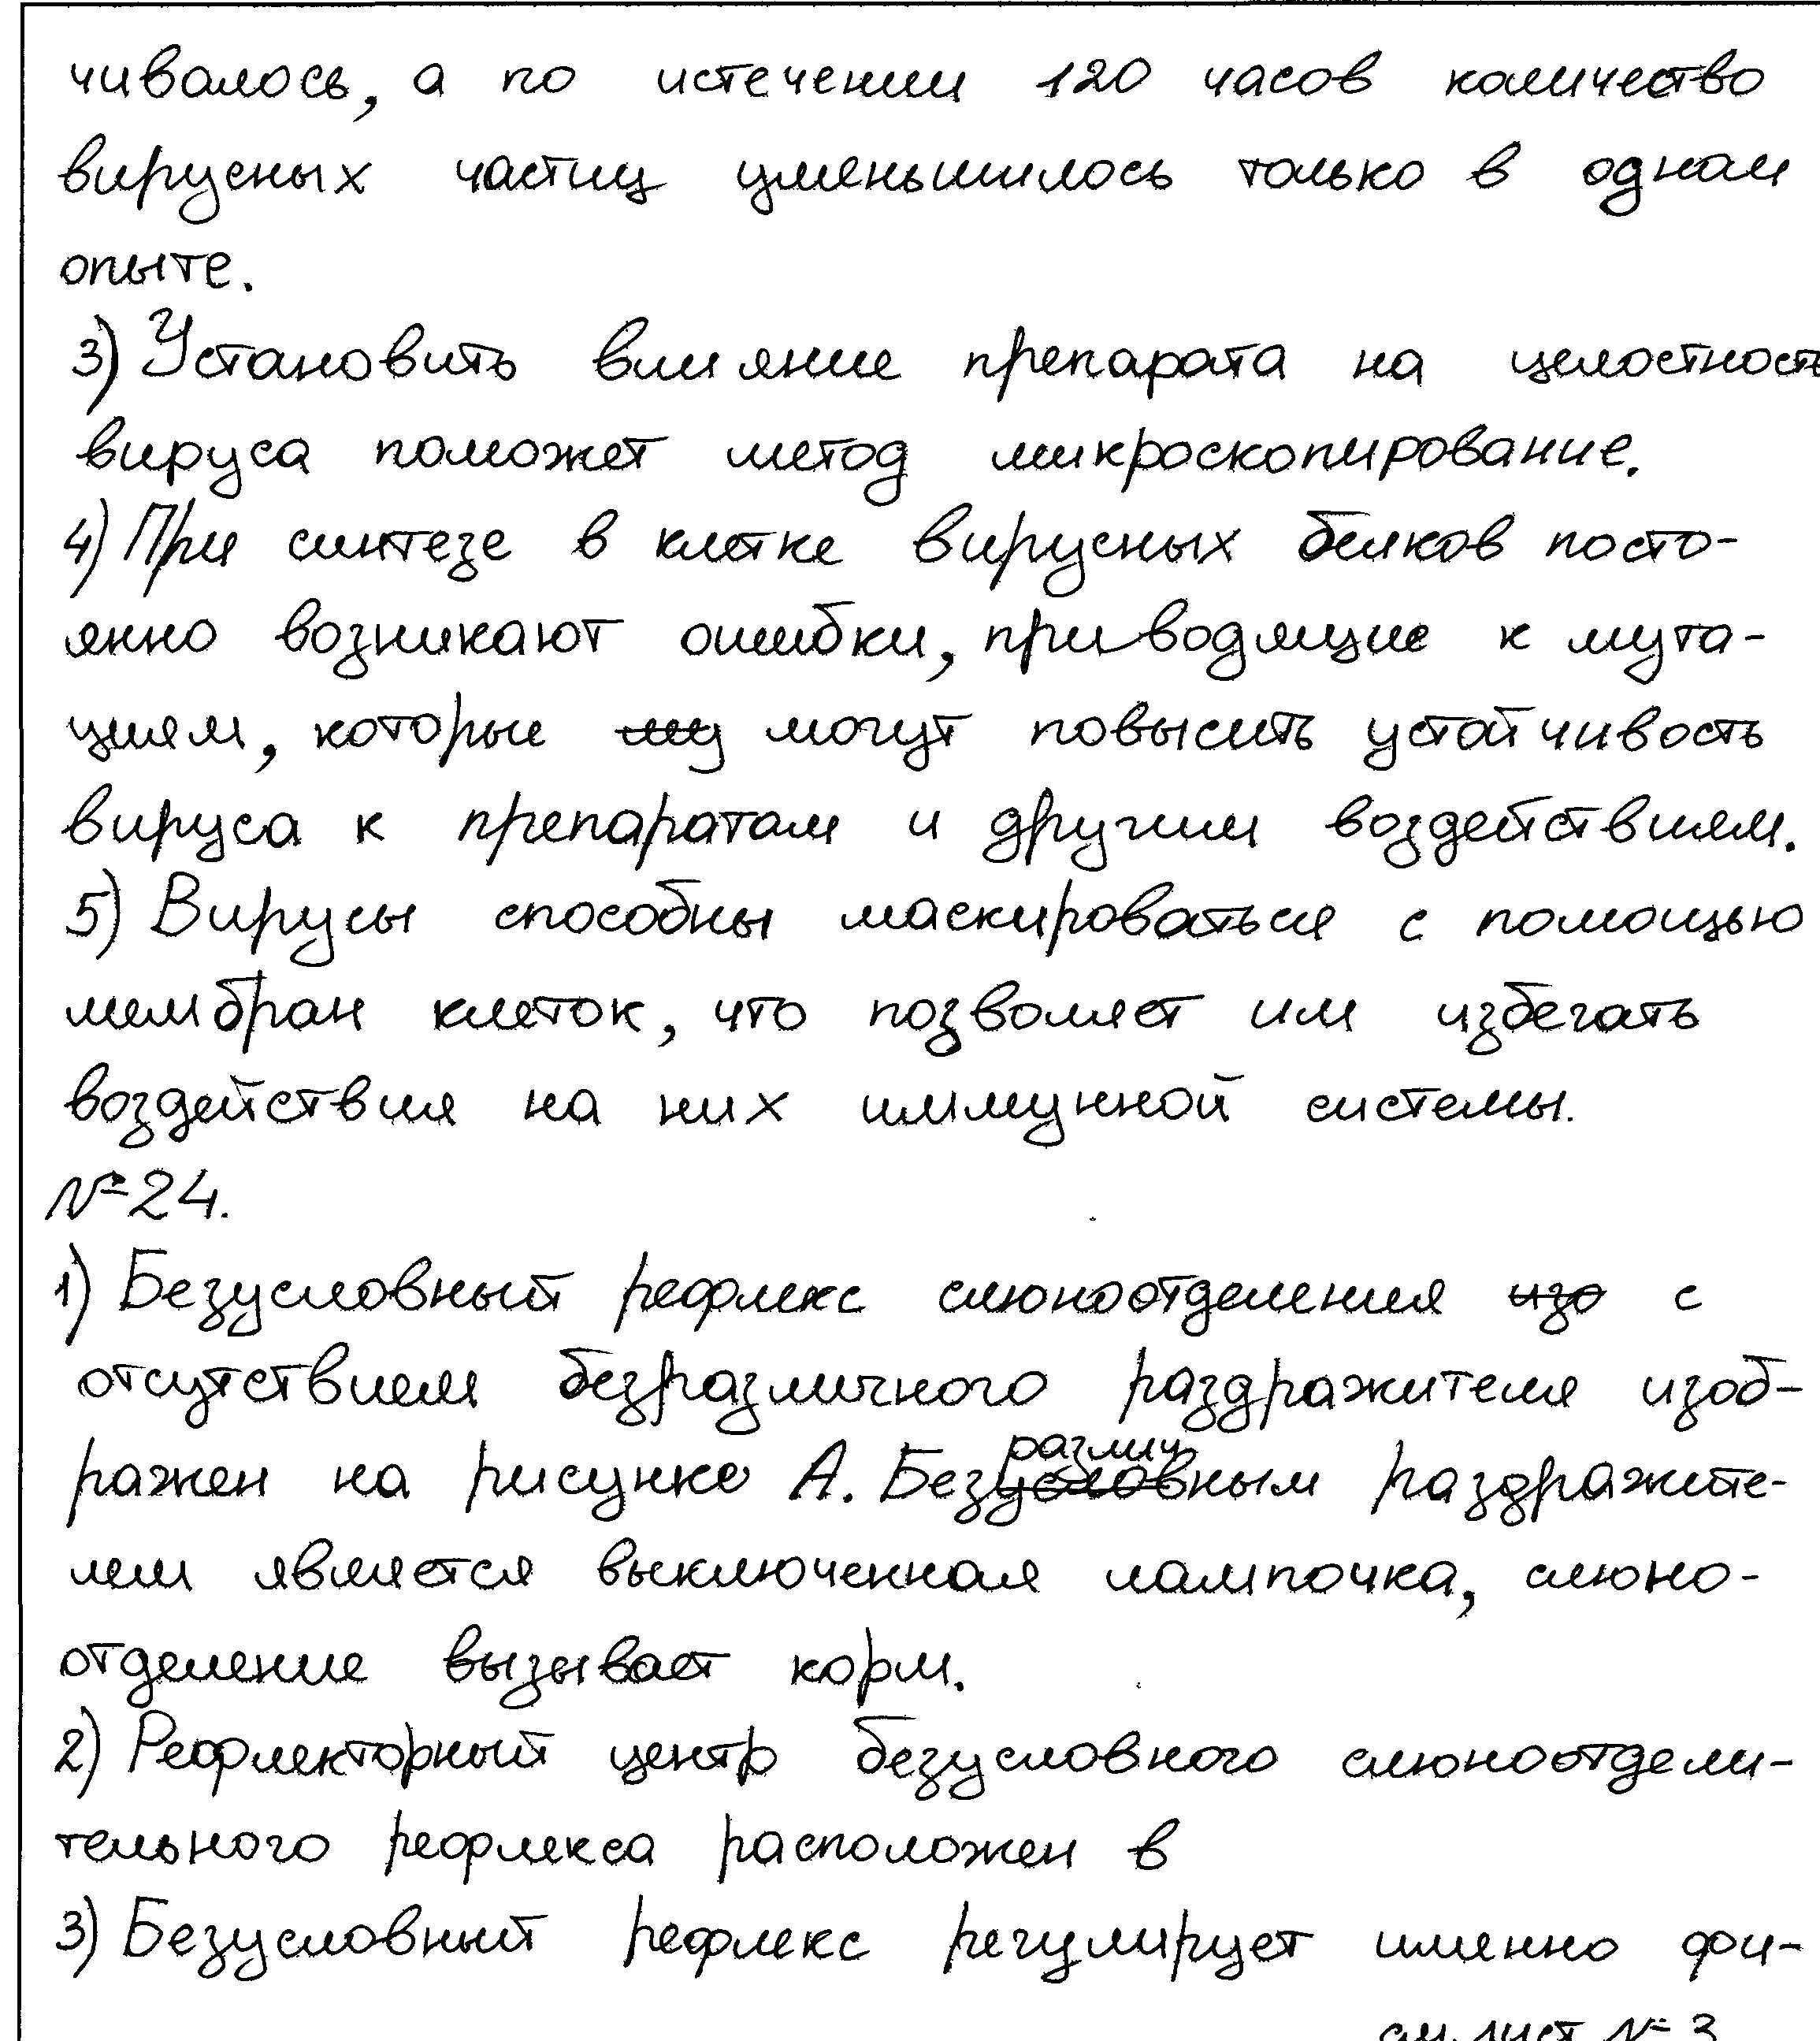 чивалось, а по истечении 120 часов количество
вирусных частиц уменьшилось только в одном
опыте.
3) Установить влияние препарата на целостность
вируса поможет метод микроскопирование.
4) При синтезе в клетке вирусных белков посто-
янно возникают ошибки, приводящие к мута-
циям, которые му могут повысить устойчивость
вируса к препаратам и другим воздействиям.
5) Вирусы способны маскироваться с помощью
мембран клеток, что позволяет им избегать
воздействия на них иммунной системы.
№24.
1) Безусловный рефлекс слюноотделения изо с
отсутствием безразличного раздражителя изоб-
ражен на рисунке А. Безразличным раздражите-
лем является выключенная лампочка, слюно-
отделение вызывает корм.
2) Рефлекторный центр безусловного слюноотдели-
тельного рефлекса расположен в
3) Безусловный рефлекс регулирует именно фи-
см. лист № 3